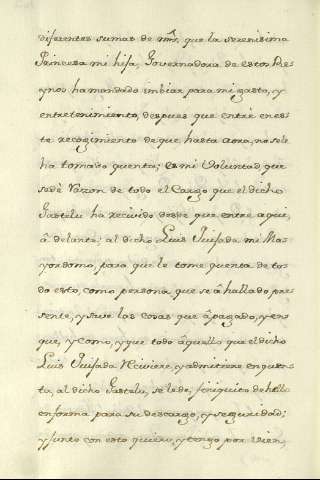 diferentes sumas de mrs, que la serenissima
Princesa mi hija, Governadora de estos Re-
ynos ha mandado imbiar para mi gasto, y
entretenimiento, despues que entré en es-
te recogimiento de que hasta aora, no se le
ha tomado quenta; es mi Voluntad que
se dè Razon de todo el Cargo que el dicho
Gastelu ha recivido desde que entre aqui,
â delante; al dicho Luis Quijada mi Ma-
yordomo, para que le tome quenta de to-
do esto, como persona que se â hallado pre-
sente, y save las cosas que â pagado, y en
que, y como, y que todo âquello que el dicho
Luis Quijada Recivere, y admitiere en quen-
ta, al dicho Gastelu, se le de, finiquito de ello
en forma para su descargo, y seguridad;
y junto con esto quiero, y tengo por vien,